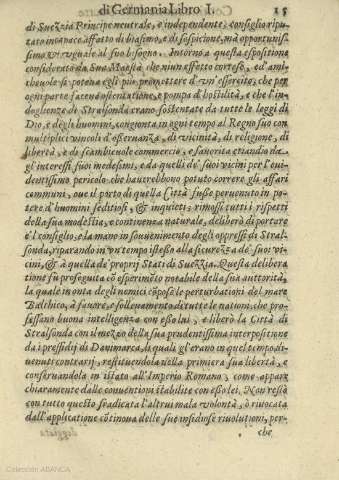 di Germania Libro I. 15
di Suezzia Principe neutrale, e independente; consiglio ripu-
tato incapace affatto di biasimo, e di sospicione, mà opportunis-
simo & vguale al suo bisogno. Intorno a questa espositione
considerato da Sua Maestà che niun effetto cortese, ed ami-
cheuole si poteua egli più promettere d'vn'essercito, che per
ogni parte facea ostentatione, e pompa di hostilità, e che l'in-
doglienze di Stralsonda erano sostentate da tutte le leggi di
Dio, e degli huomini, congionta in ogni tempo al Regno suo con
multiplici vincoli d'osseruanza, di vicinità, di religione, di
libertà, e di scambieuole commercio, e fauorita etiandio da-
gl'interessi suoi medesimi, e da quelli de' suoi vicini per l'eui-
dentissimo pericolo, che haurebbono potuto correre gli affari
communi, oue il porto di quella Città fusse peruenuto in po-
tere d'huomini seditiosi, & inquieti; rimossi tutti i rispetti
della sua modestia, e continenza naturale, deliberò di portare
e'l consiglio, e la mano in souuenimento degli oppressi di Stral-
sonda, riparando in vn tempo istesso alla sicurezza de' suoi vi-
cini, & à quella de' proprij Stati di Suezzia. Questa delibera
tione fu proseguita cō esperimēto notabile della sua auttorità,
la quale in onta degli inemici cōpose le perturbationi del mare
Balthico, à fauore, e solleuamento di tutte le nationi, che pro-
fessano buona intelligenza con esso lui, e liberò la Città di
Stralsonda con il mezzo della sua prudentissima interpositione
da i presidij di Danimarca, li quali gl'erano in quei tempi di-
uenuti contrarij, restituendola nella primiera sua libertà, e
conseruandola in istato all'Imperio Romano, come appare
chiaramente dalle conuentioni stabilite con esso lei. Non restò
con tutto questo sradicata l'altrui mala volontà, ò riuocata
dall'applicatione cōtinoua delle sue insidiose riuolutioni, per-
che
Colección ABANCA